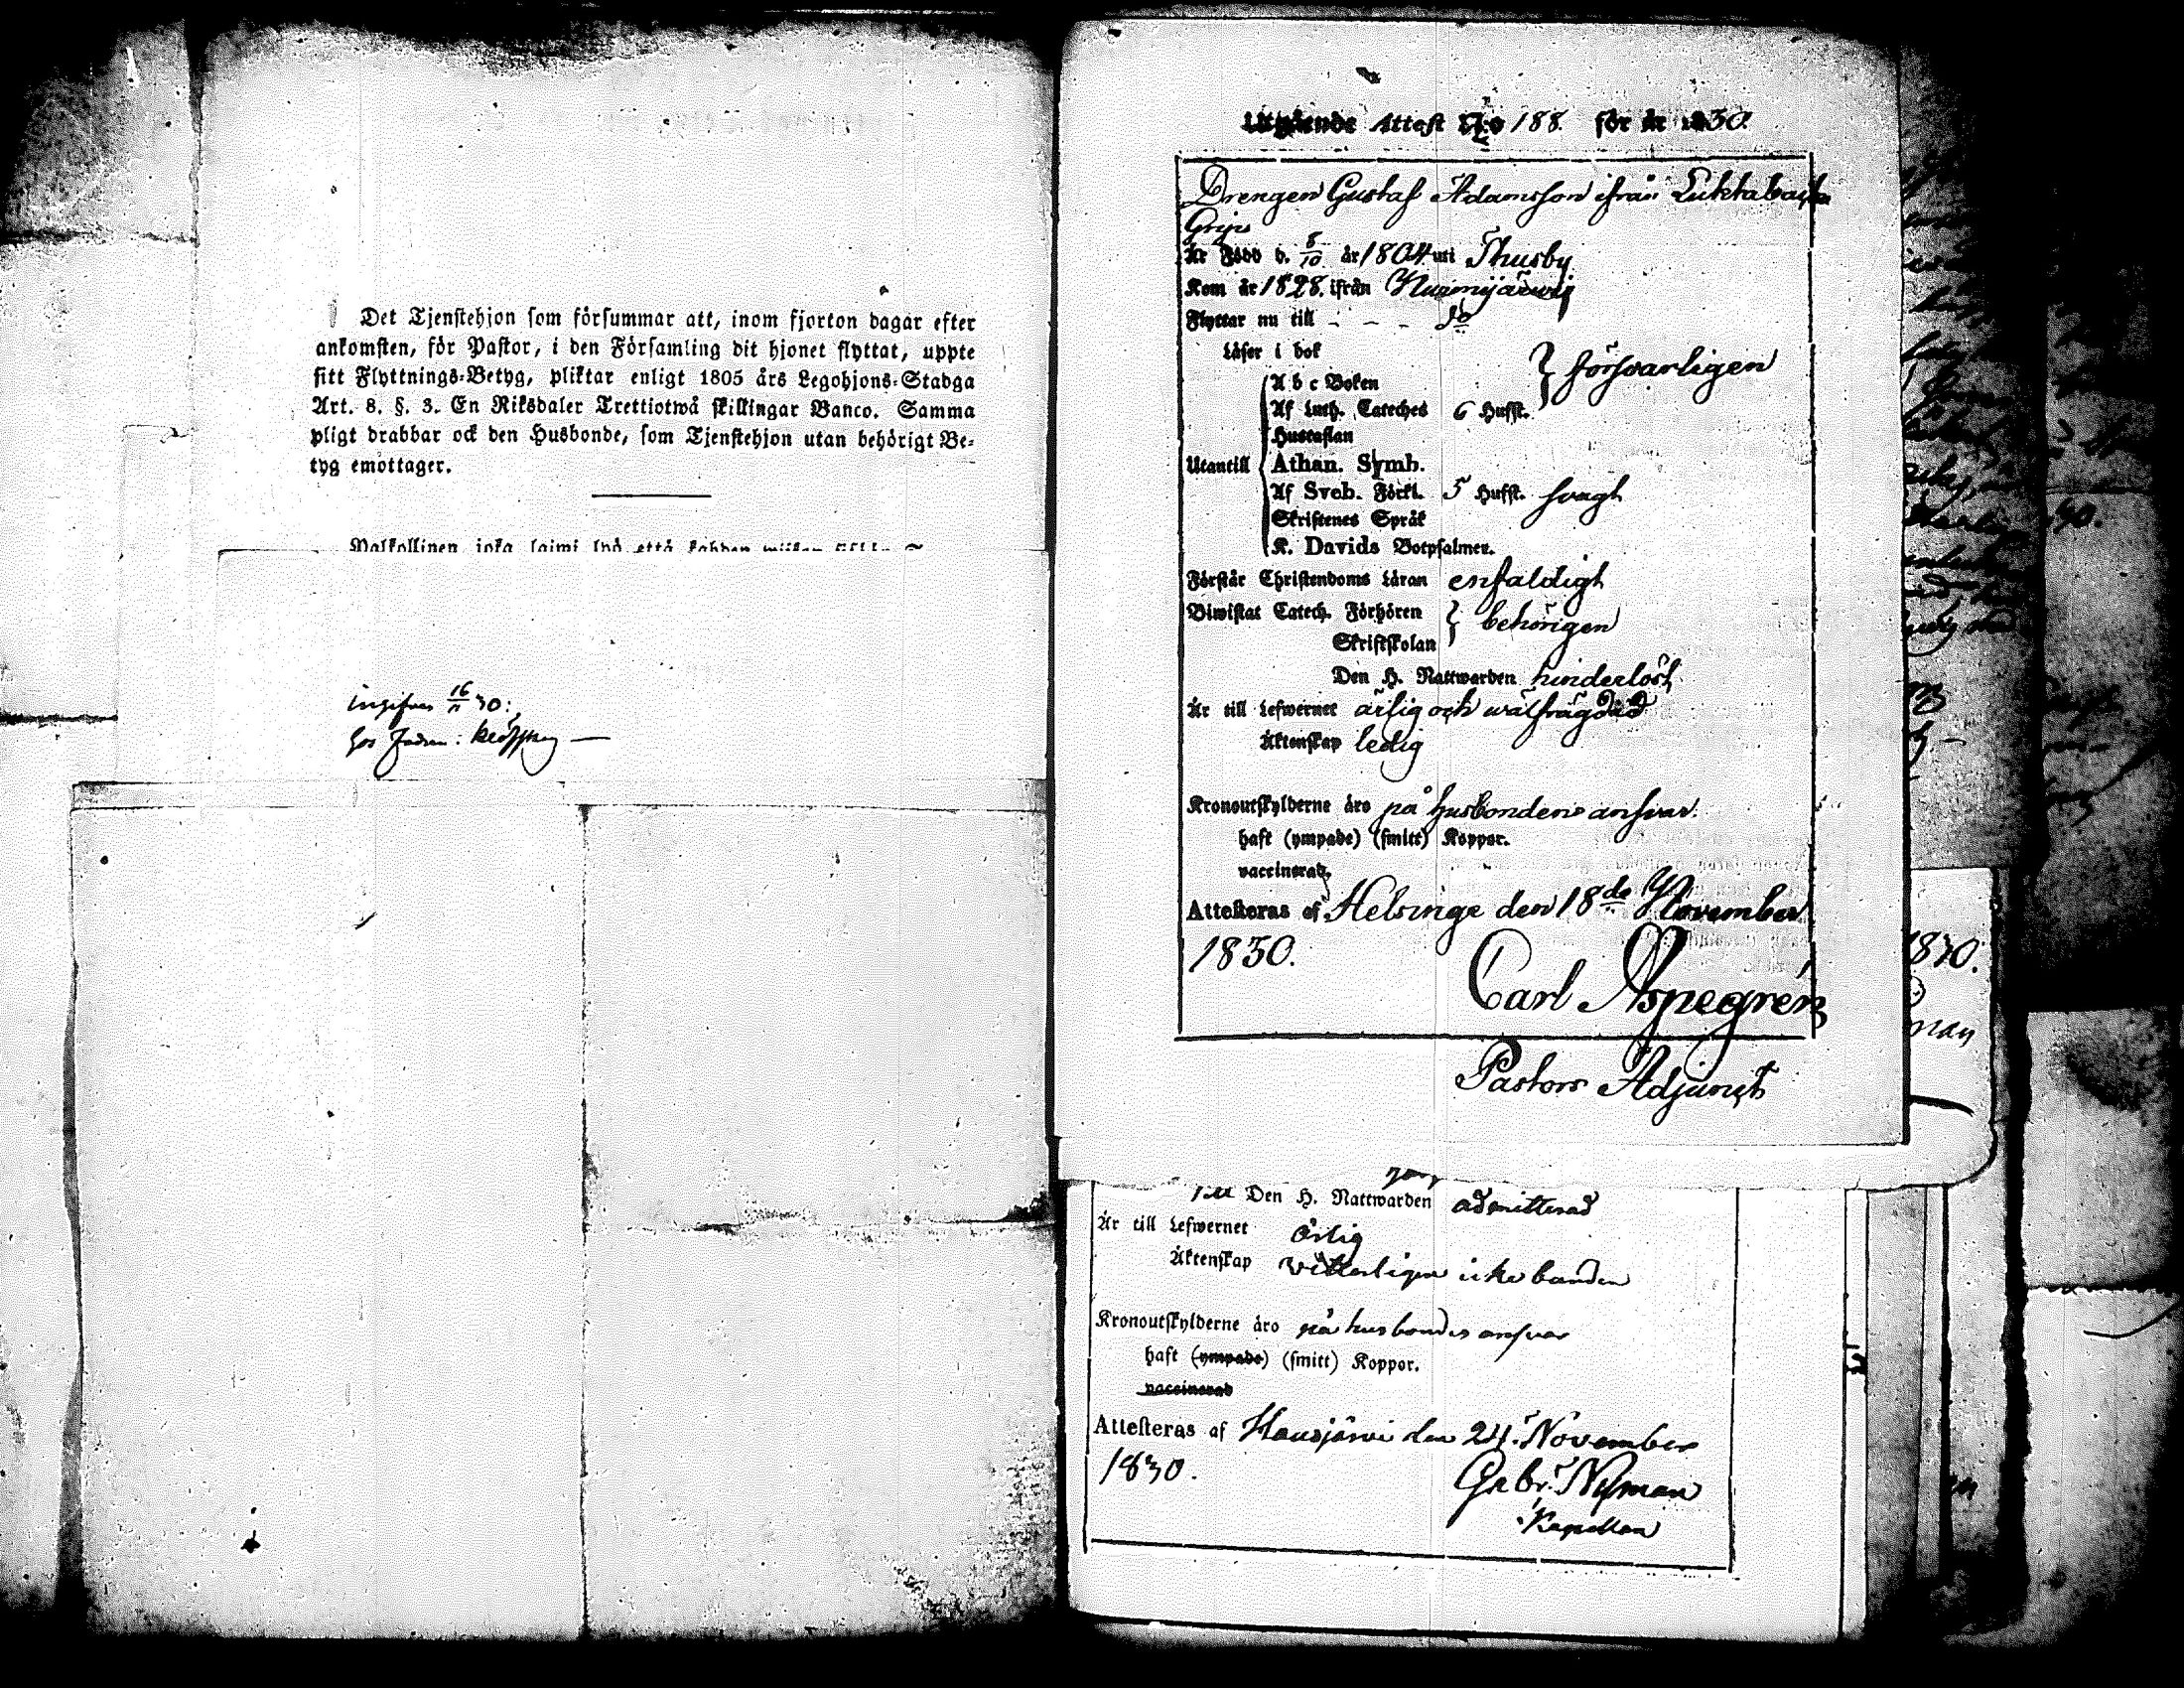 Det Tjenstehjon som försummar att, inom fjorton dagar efter
ankomsten, för Pastor, i den Församling dit hjonet flyttat, uppte
sitt Flyttnings-Betyg, pliktar enligt 1805 års Legohjons-Stadga
Art. 8. §. 3. En Riksdaler Trettiotwå skillingar Banco. Samma
pligt drabbar ock den Husbonde, som Tjenstehjon utan behörigt Be-
tyg emottager.
Palkollinen joka laimi lyö että
16/11 30:
Utgående Attest N:o 188. för år 1830.
Drengen Gustaf Adamsson ifrån
Grips
Är Född d. 8/10 år 1804 uti Thusby
Kom år 1828. ifrån Nurmijärwij
Flyttar nu till - - - do
Läser i bok
A b c Boken } försvarligen
Af Luth. Cateches 6 Hufst.
Hustaflan
Utantill Athan. Symb.
Af Sveb. Förkl. 5 Hufst. svagt
Skriftenes Språk
K. Davids Botpsalmer.
Förstår Christendoms Läran enfaldigt
Biwistat Catech. Förhören } behörigen
Skriftskolan
Den H. Nattwarden hinderlöst
Är till Lefwernet ärlig och wälfrägdad
Äktenskap ledig
Kronoutskylderne äro på husbondens ansvar.
haft (ympade) (smitt) Koppor.
vaccinerad.
Attesteras af Helsinge den 18de November
1830.
Carl Aspegrén
Pastors Adjunct
Den H. Nattwarden admitterad
Är till Lefwernet ärlig
Äktenskap vitterligen icke bunden
Kronoutskylderne äro på husbondes ansvar
haft (ympade) (smitt) Koppor.
vaccinerad
Attesteras af Hausjärvi den 24. November
1830.
Gabr. Nyman
Kapellan
1830.